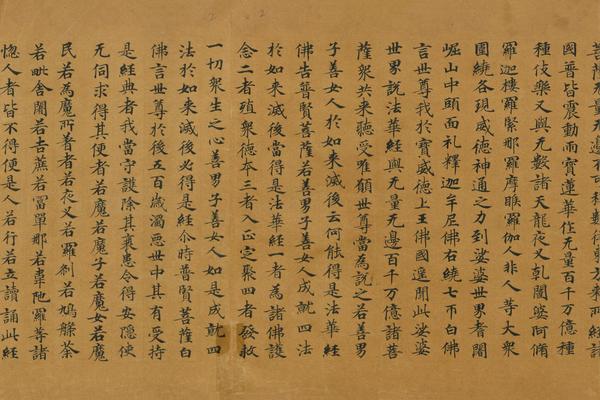 菩薩无量无邊不可稱數從東方來所經諸
國普皆震動而寶蓮華作无量百千万億種
種伎樂又與无數諸天龍夜叉乹闥婆阿脩
羅迦樓羅緊那羅摩睺羅伽人非人等大衆
圍繞各現威德神通之力到娑婆世界耆闍
崛山中頭面礼釋迦牟尼佛右繞七帀白佛
言世尊我於寶威德上王佛國遥聞此娑婆
世界說法華經與无量无邊百千万億諸菩
薩衆共來聽受唯願世尊當為說之若善男
子善女人於如來滅後云何能得是法華經
佛告普賢菩薩若善男子善女人成就四法
於如來滅後當得是法華經一者為諸佛護
念二者殖衆德本三者入正定聚四者發救
一切衆生之心善男子善女人如是成就四
法於如來滅後必得是經尒時普賢菩薩白
佛言世尊於後五百歲濁惡世中其有受持
是經典者我當守護除其衰患令得安隱使
无伺求得其便者若魔若魔子若魔女若魔
民若為魔所著者若夜叉若羅剎若鳩槃荼
若毗舍闍若吉蔗若富單那若韋陁羅等諸
惱人者皆不得便是人若行若立讀誦此經